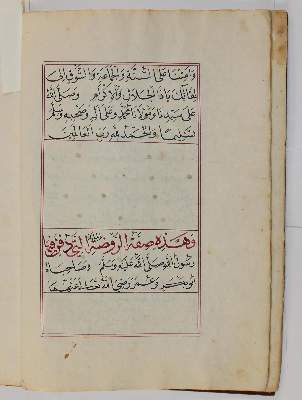 وامتنا على السنة والجماعة والشوق الى
لقائك ياذا الجلال والاكرام وصلى الله
على سيدنا ومولانا محمد وعلى اله وصحبه وسلم
تسليما والحمد لله رب العالمين
وهذه صفة الروضة التى دفن فيها
رسول الله صلى الله عليه وسلم وصاحباه
ابو بكر وعمر رضى الله تعالى عنهما